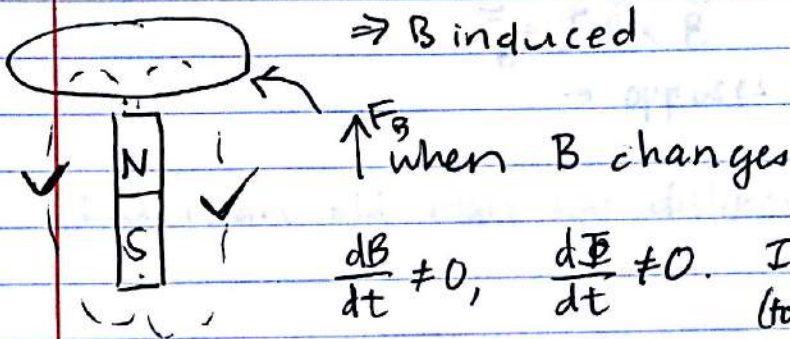 ⇒ B induced
↑F_B when B changes
N
S
dB/dt ≠ 0, dΦ/dt ≠ 0.